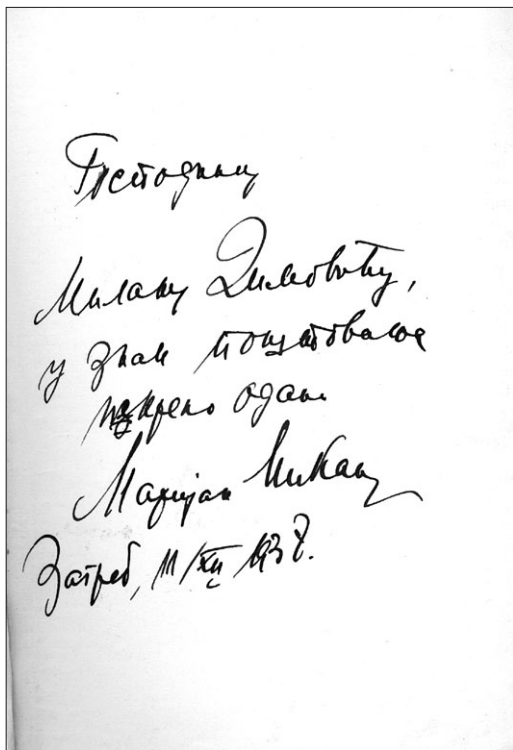 Господину
Милану Димовићу,
у знак поштовања
искрено одан
Маријан Микац
Загреб, 11/XII 1937.